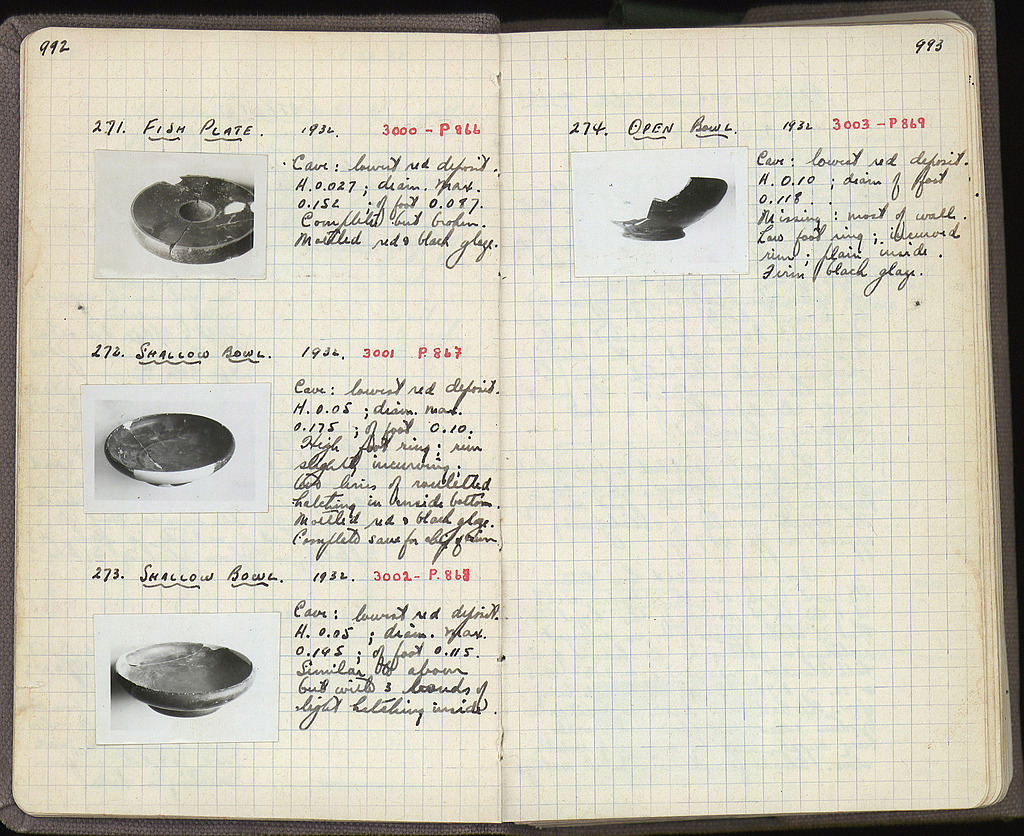 992
271. FISH PLATE. 1932. 3000 - P 866
Cave: lowest red deposit.
H. 0.027 ; diam. max.
0.152 ; of foot 0.087.
Complete but broken.
Mottled red & black glaze.
272. SHALLOW BOWL. 1932. 3001 P. 867
Cave: lowest red deposit.
H. 0.05 ; diam. max.
0.175 ; of foot 0.10.
High foot ring ; rim
slightly incurving ;
two lines of rouletted
hatching in inside bottom.
Mottled red & black glaze.
Complete save for chip of rim.
273. SHALLOW BOWL. 1932. 3002 - P. 868
Cave: lowest red deposit.
H. 0.05 ; diam. max.
0.195 ; of foot 0.115.
Similar to above
but with 3 bands of
light hatching inside.
993
274. OPEN BOWL. 1932 3003 - P 869
Cave: lowest red deposit.
H. 0.10 ; diam of foot
0.118.
Missing : most of wall.
Low foot ring ; incurved
rim ; plain inside.
Firm black glaze.